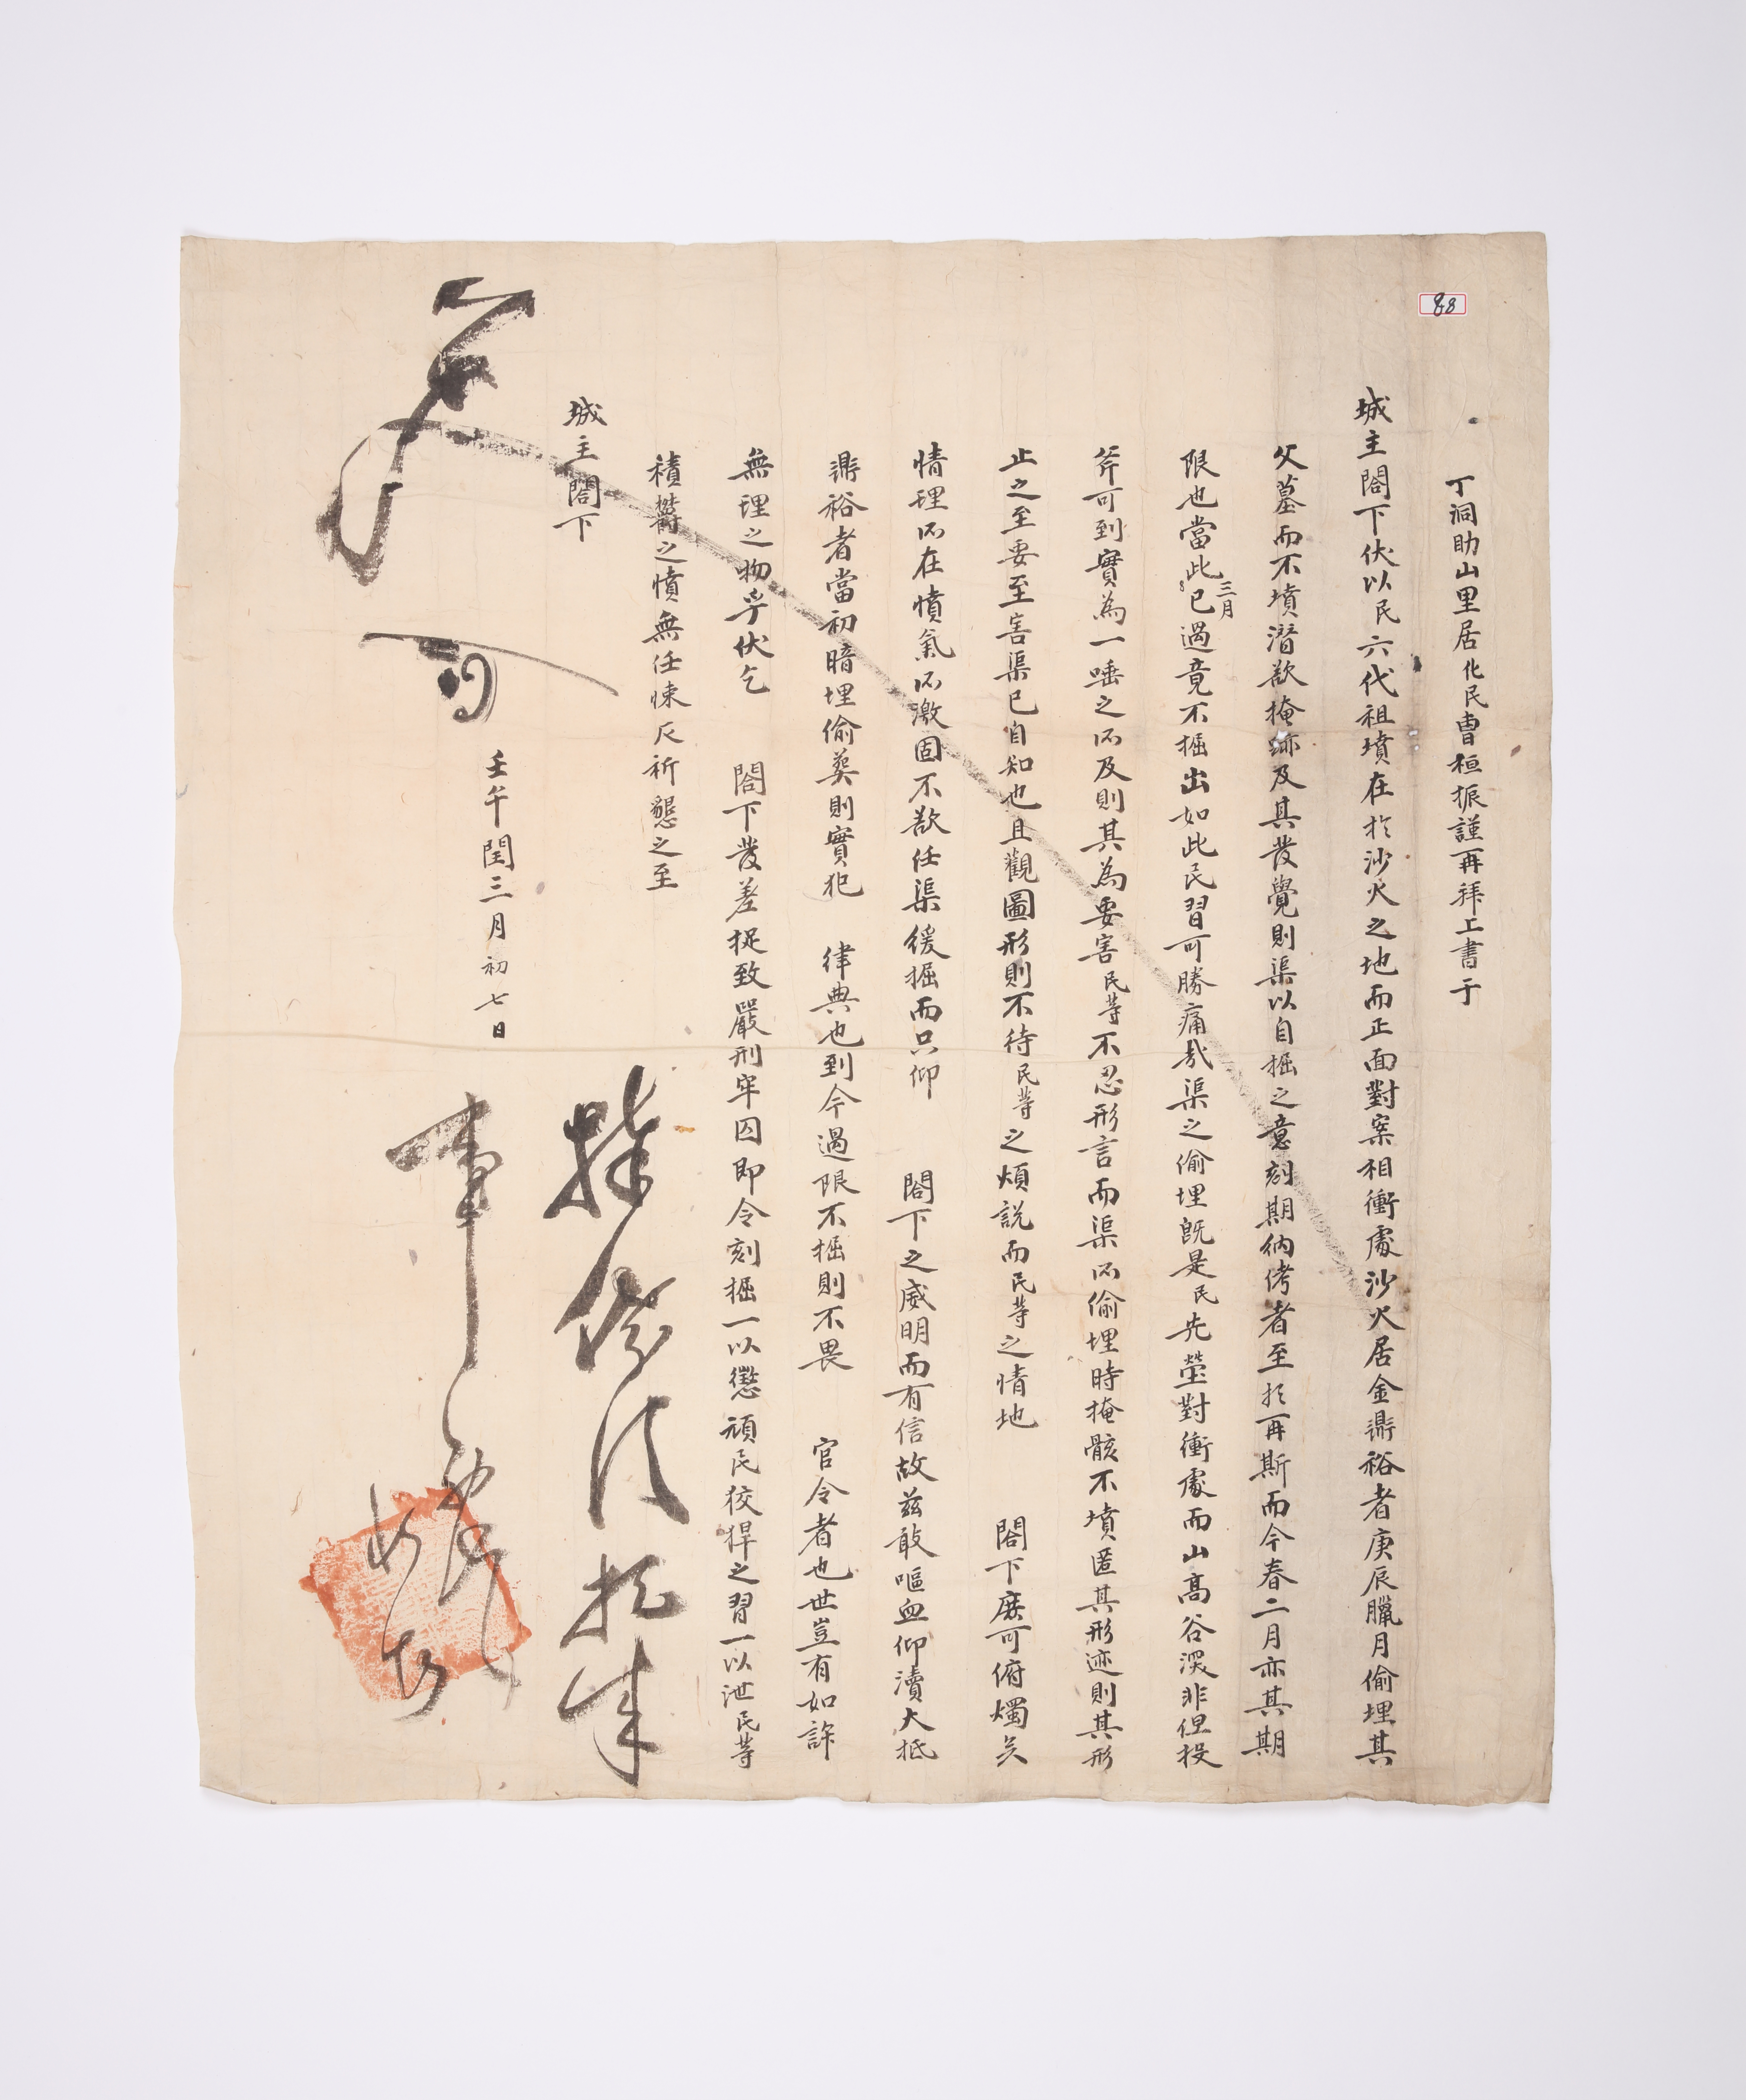 88
丁洞助山里居化民曺桓振謹再拜上書于
城主閤下伏以民六代祖墳在於沙火之地而正面對案相衝處沙火居金鼎裕者庚辰臘月偷埋其
父墓而不墳潛欲掩跡及其發覺則渠以自掘之意刻期納侤者至於再斯而今春二月亦其期
限也當此三月已過竟不掘出如此民習可勝痛哉渠之偷埋旣是民先塋對衝處而山高谷深非但投
斧可到實為一唾之所及則其為要害民等不忍形言而渠所偷埋時掩骸不墳匿其形迹則其形
止之至要至害渠已自知也且觀圖形則不待民等之煩說而民等之情地 閤下庶可俯燭矣
情理所在憤氣所激固不欲任渠緩掘而只仰 閤下之威明而有信故茲敢嘔血仰瀆大抵
鼎裕者當初暗埋偷葬則實犯 律典也到今過限不掘則不畏 官令者也世豈有如許
無理之物乎伏乞 閤下發差捉致嚴刑牢囚即令刻掘一以懲頑民狡悍之習一以泄民等
積鬱之憤無任悚仄祈懇之至
城主閤下
壬午閏三月初七日
捉來
事